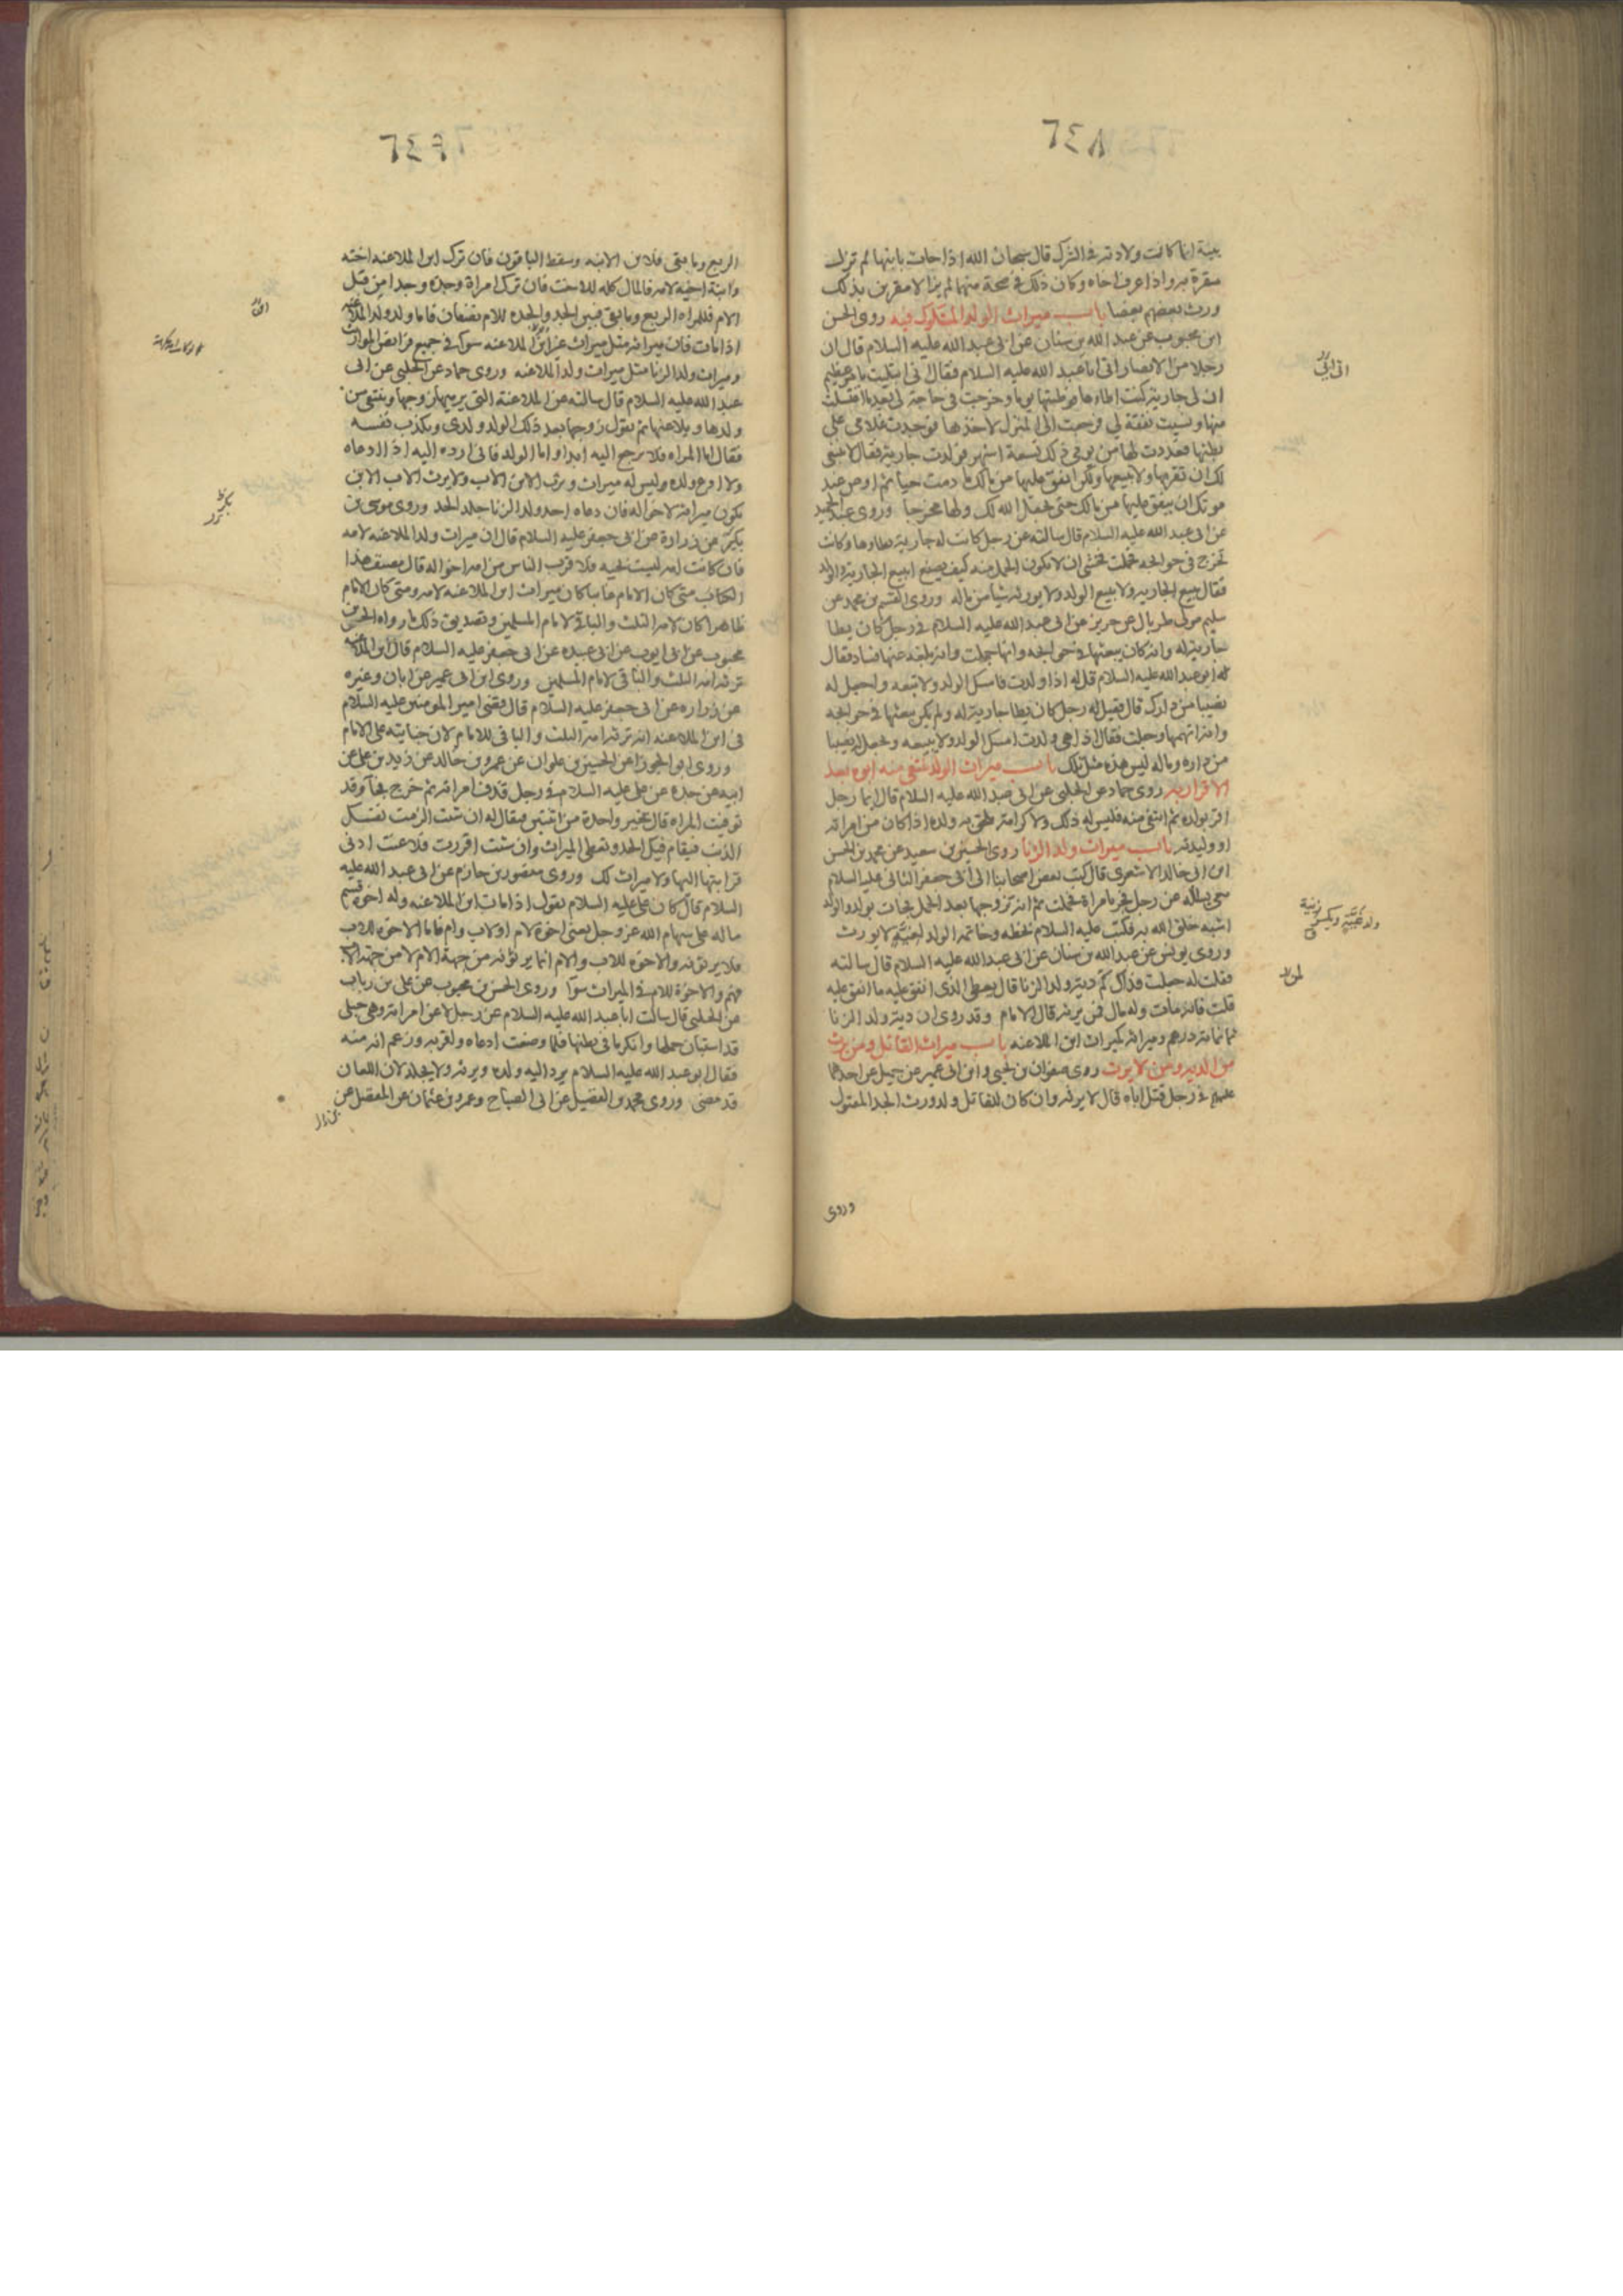 ٦٤٨
بينة انما كانت ولادته في الشرك قال سبحان الله اذا جاءت بابنها لم تزل
مقرة به واذا عرف اخاه وكان ذلك في صحة منهما لم يزالا مقرين بذلك
ورث بعضهم بعضا باب ميراث الولد المشكوك فيه روى الحسن
ابن محبوب عن عبد الله بن سنان عن ابى عبد الله عليه السلام قال ان
رجلا من الانصار اتى ابا عبد الله عليه السلام فقال انى ابتليت بامر عظيم
ان لى جارية كنت اطاءها فوطئتها يوما وخرجت فى حاجة لى بعد ما اغتسلت
منها ونسيت نفقة لي فرجعت الى المنزل لاخذها فوجدت غلامى على
بطنها فعددت لها من يومى ذلك تسعة اشهر فولدت جارية فقال لا ينبغى
لك ان تقربها ولا تبيعها ولكن انفق عليها من مالك ما دمت حيا ثم اوص عند
موتك ان ينفق عليها من مالك حتى يجعل الله لك ولها مخرجا وروى عبد الحميد
عن ابى عبد الله عليه السلام قال سالته عن رجل كانت له جارية يطاءها وكانت
تخرج فى حوائجه فحملت فخشى ان لا يكون الحمل منه كيف يصنع ايبيع الجارية والولد
فقال يبيع الجارية ولا يبيع الولد ولا يورثه شيأ من ماله وروى القسم بن محمد عن
سليم مولى طربال عن حريز عن ابى عبد الله عليه السلام فى رجل كان يطا
جارية له وانه كان يبعثها فى حوائجه وانها حملت وانه بلغه عنها فساد فقال
له ابو عبد الله عليه السلام قل له اذا ولدت فامسك الولد ولا تبعه واجعل له
نصيبا من دارك قال فقيل له رجل كان يطا جارية له ولم يكن يبعثها فى حوائجه
وانه اتهمها وحبلت فقال اذا هى ولدت امسك الولد ولا يبيعه ويجعل له نصيبا
من داره وماله ليس هذه مثل تلك باب ميراث الولد ينتفى منه ابوه بعد
الاقرار به روى حماد عن الحلبى عن ابى عبد الله عليه السلام قال ايما رجل
اقر بولده ثم انتفى منه فليس له ذلك ولا كرامة يلحق به ولده اذا كان من امراته
او وليدته باب ميراث ولد الزنا روى الحسين بن سعيد عن محمد بن الحسن
ابن ابى خالد الاشعرى قال كتب بعض اصحابنا الى ابى جعفر الثانى عليه السلام
معى يساله عن رجل فجر بامراة فحملت ثم انه تزوجها بعد الحمل فجاءت بولد والولد
اشبه خلق الله به فكتب عليه السلام بخطه وخاتمه الولد لغية لا يورث
وروى يونس عن عبد الله بن سنان عن ابى عبد الله عليه السلام قال سالته
فقلت له جعلت فداك كم دية ولد الزنا قال يعطى الذى انفق عليه ما انفق عليه
قلت فانه مات وله مال فمن يرثه قال الامام وقد روى ان دية ولد الزنا
ثمانمائة درهم وميراثه كميراث ابن الملاعنه باب ميراث القاتل ومن يرث
من الدية ومن لا يرث روى صفوان بن يحيى وابن ابى عمير عن جميل عن احدهما
عليهم فى رجل قتل اباه قال لا يرثه وان كان للقاتل ولد ورث الجد المقتول
وروى
٦٤٩
الربع وما بقى فلابن الابنه وسقط الباقون فان ترك ابن الملاعنه اخته
وابنة اخيه لامه فالمال كله للاخت فان ترك امراة وجده وجدا من قبل
الام فللمراه الربع وما بقى فبين الجد والجده للام نصفان فاما ولد ولد الملاعنه
اذا مات فان ميراثه مثل ميراث غير ابن الملاعنه سواء فى جميع فرائض المواريث
وميراث ولد الزنا مثل ميراث ولد الملاعنه وروى حماد عن الحلبى عن ابى
عبد الله عليه السلام قال سالته عن الملاعنة التى يرميها زوجها وينتفى من
ولدها ويلاعنها ثم يقول زوجها بعد ذلك الولد ولدى ويكذب نفسه
فقال اما المراه فلا ترجع اليه ابدا واما الولد فانى ارده اليه اذا ادعاه
ولا ادع ولده وليس له ميراث ويرث الابن الاب ولا يرث الاب الابن
يكون ميراثه لاخواله فان دعاه احد ولد الزنا جلد الحد وروى موسى بن
بكر عن زرارة عن ابى جعفر عليه السلام قال ان ميراث ولد الملاعنه لامه
فان كانت امه ليست بحيه فلاقرب الناس من امه اخواله قال مصنف هذا
الكتاب متى كان الامام غايبا كان ميراث ابن الملاعنه لامه ومتى كان الامام
ظاهرا كان لامه الثلث والباقى لامام المسلمين وتصديق ذلك ما رواه الحسن بن
محبوب عن ابى ايوب عن ابى عبيده عن ابى جعفر عليه السلام قال ابن الملاعنه
ترثه امه الثلث والباقى لامام المسلمين وروى ابن ابى عمير عن ابان وغيره
عن زراره عن ابى جعفر عليه السلام قال قضى امير المومنين عليه السلام
فى ابن الملاعنه انه ترثه امه الثلث والباقى للامام لان جنايته على الامام
وروى ابو الجوزا عن الحسين بن علوان عن عمرو بن خالد عن زيد بن على عن
ابيه عن جده عن على عليه السلام فى رجل قذف امراته ثم خرج فجاء وقد
توفيت المراه قال يخير واحدة من اثنتين فيقال له ان شئت الزمت نفسك
الذنب فيقام فيك الحد وتعطى الميراث وان شئت اقررت فلاعنت ادنى
قرابتها اليها ولا ميراث لك وروى منصور بن حازم عن ابى عبد الله عليه
السلام قال كان على عليه السلام يقول اذا مات ابن الملاعنه وله اخوة قسم
ماله على سهام الله عز وجل يعنى اخوة لام او لاب وام فاما الاخوة للاب
فلا يرثونه والاخوه للاب والام انما يرثونه من جهة الام لا من جهة الاب
فهم والاخوة للام فى الميراث سوآء وروى الحسن بن محبوب عن على بن رياب
عن الحلبى قال سالت ابا عبد الله عليه السلام عن رجل لاعن امراته وهى حبلى
قد استبان حملها وانكر ما فى بطنها فلما وضعت ادعاه واقر به وزعم انه منه
فقال ابو عبد الله عليه السلام يرد اليه ولده ويرثه ولا يجلد لان اللعان
قد مضى وروى محمد بن الفضيل عن ابى الصباح وعمرو بن عثمان عن المفضل عن